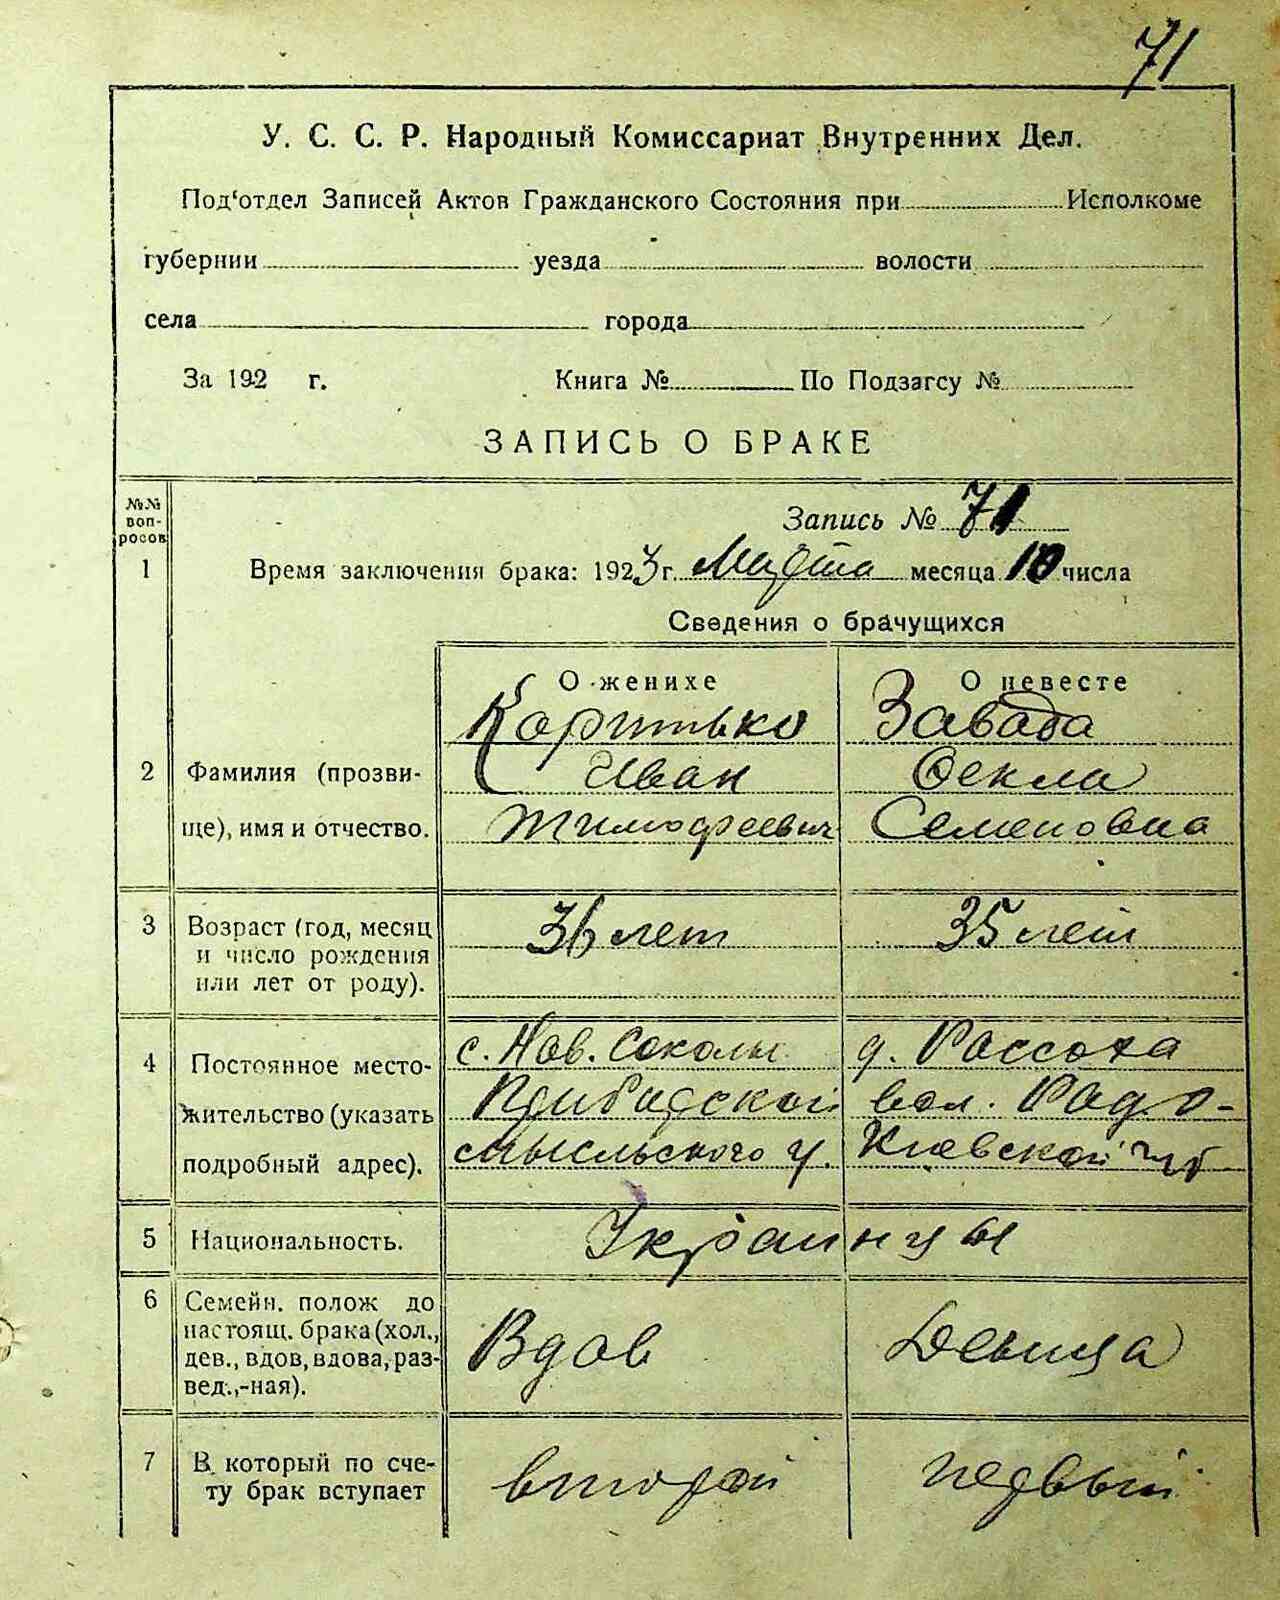 71
У. С. С. Р. Народный Комиссариат Внутренних Дел.
Под‘отдел Записей Актов Гражданского Состояния при Исполкоме
губернии уезда волости
села города
За 192 г. Книга № По Подзагсу №
ЗАПИСЬ О БРАКЕ
№№ воп-
росов
Запись № 71
1 Время заключения брака: 1923 г. Марта месяца 10 числа
Сведения о брачущихся
О женихе О невесте
Коритько Завада
2 Фамилия (прозви- Иван Фекла
ще), имя и отчество. Тимофеевич Семеновна
3 Возраст (год, месяц 36 лет 35 лет
и число рождения
или лет от роду).
с. Нов. Соколы д. Рассоха
4 Постоянное место-
жительство (указать вол. Радо-
подробный адрес). смысльского у. Киевской губ
5 Национальность. Украинцы
6 Семейн. полож до
настоящ. брака (хол., Вдов Девица
дев., вдов, вдова, раз-
вед.,-ная).
7 В который по сче- второй первый
ту брак вступает